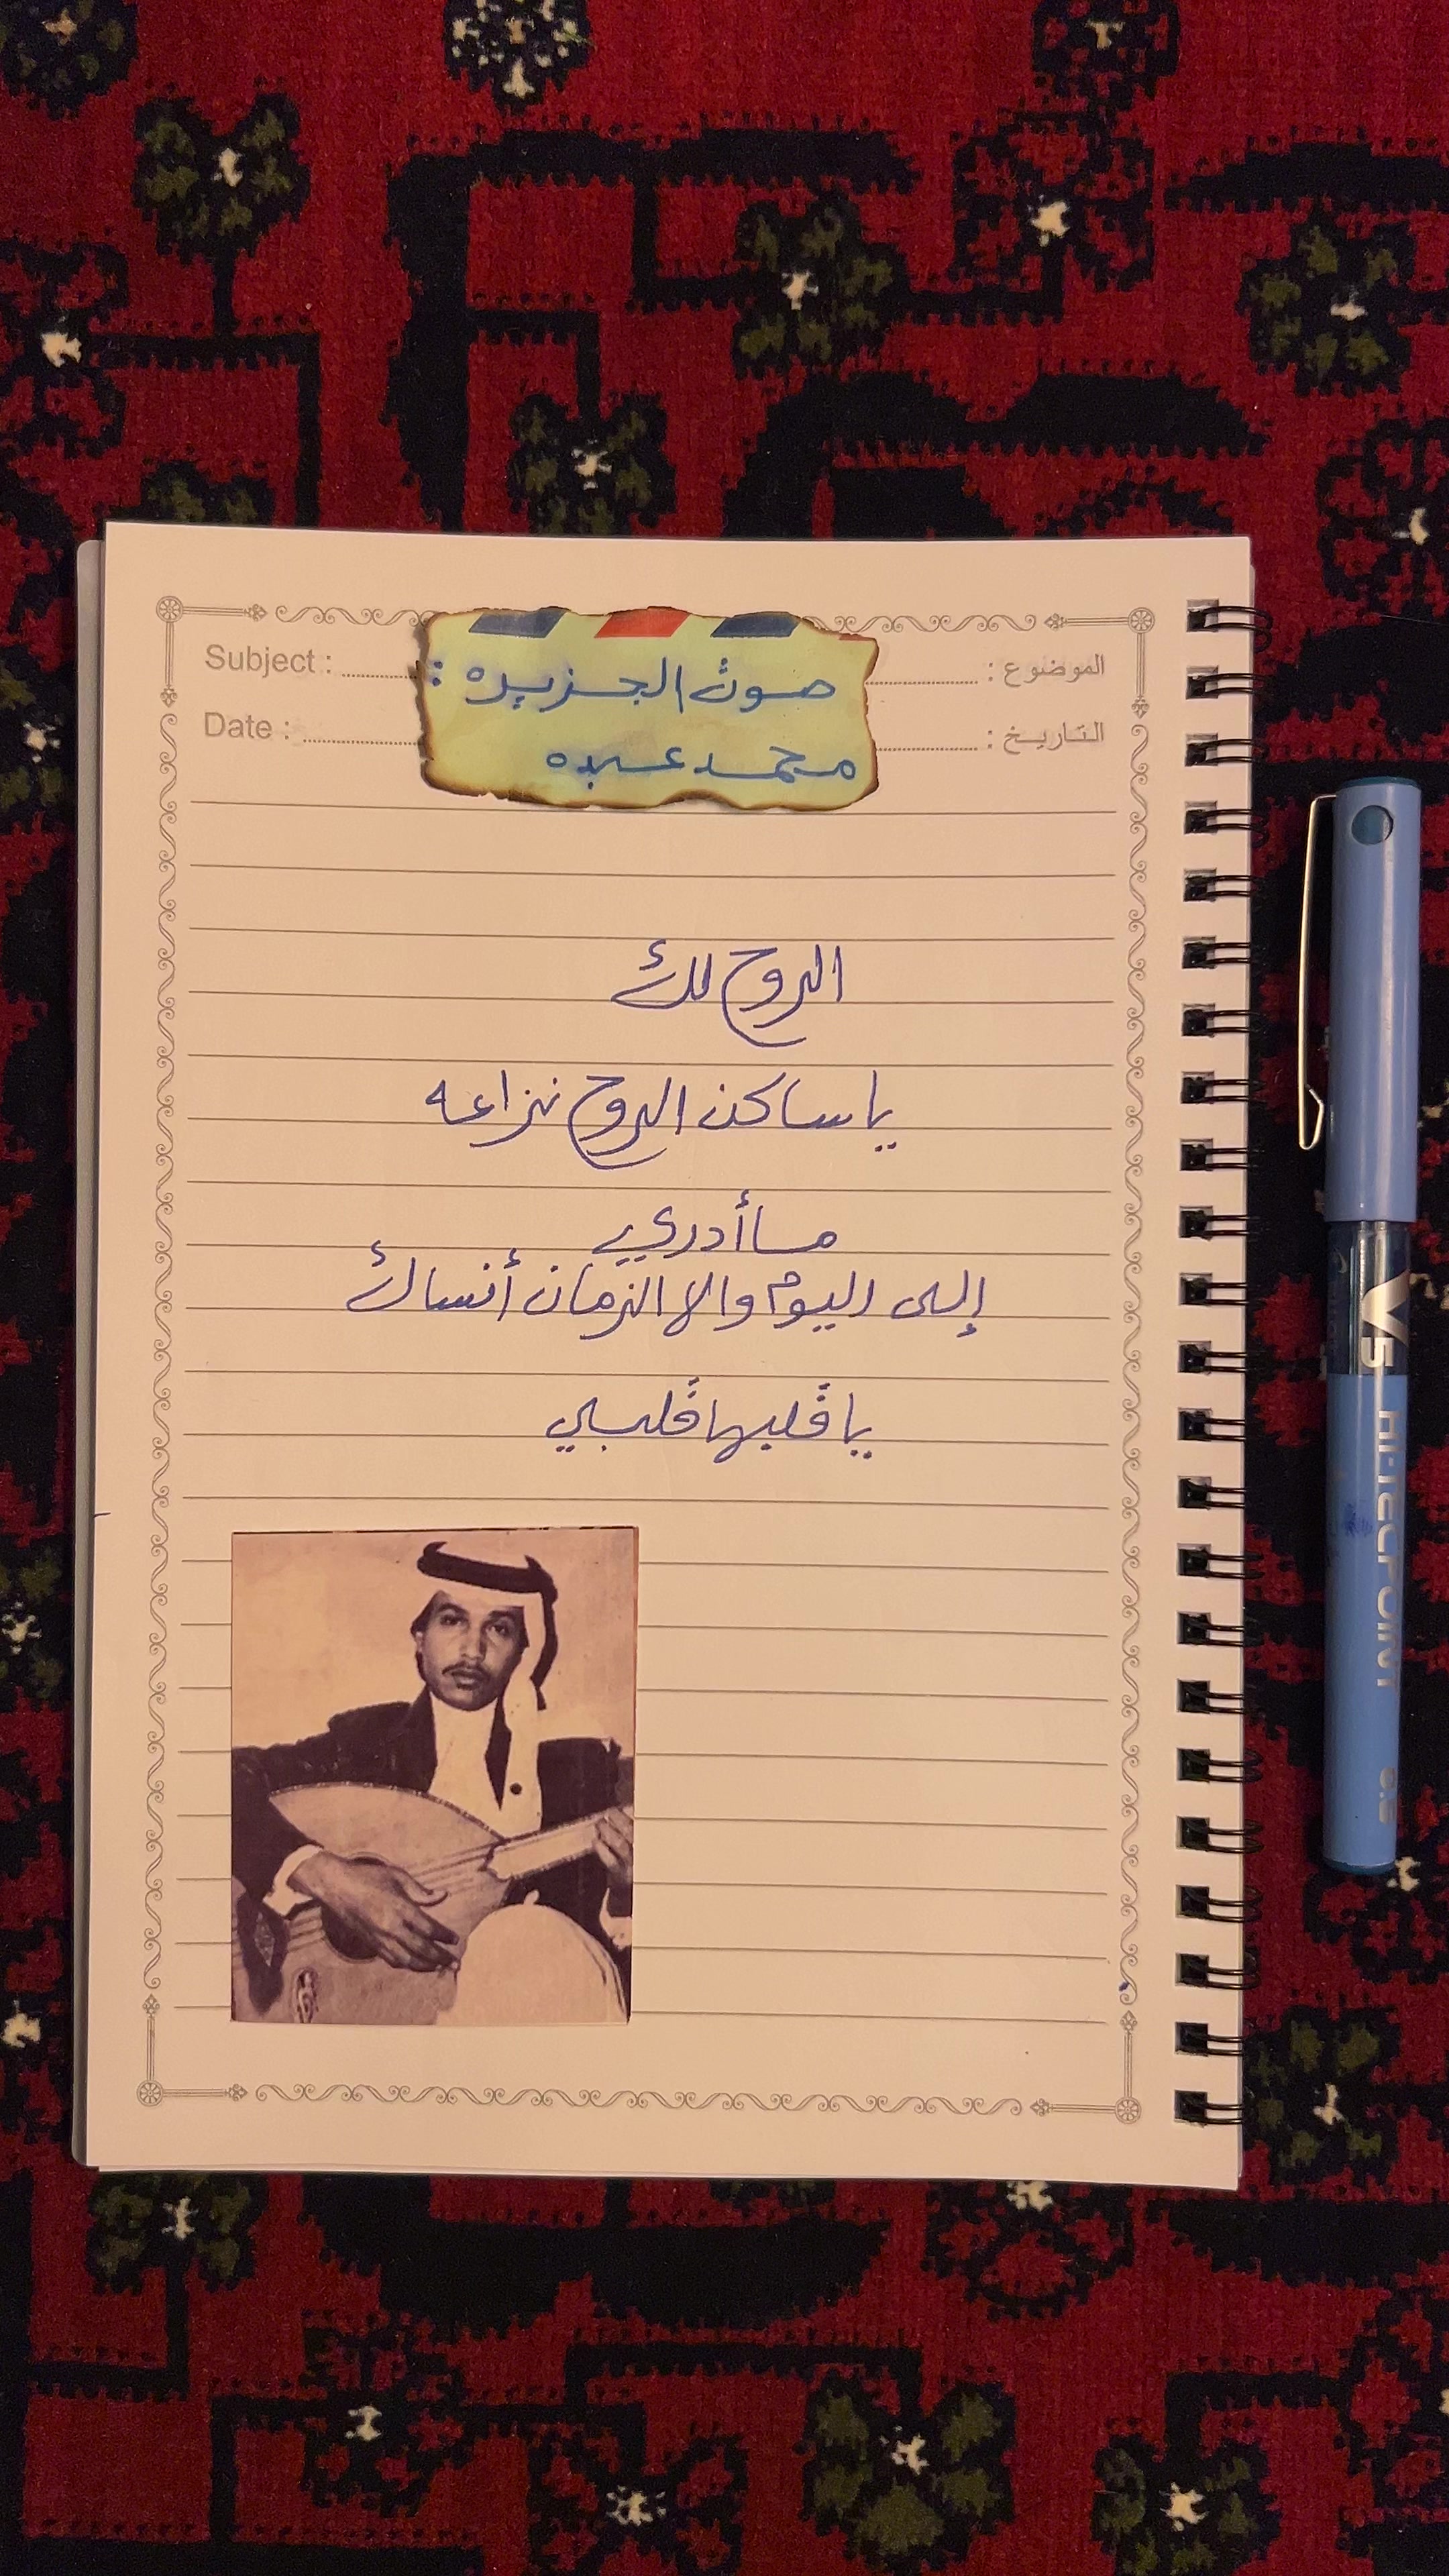 Subject : الموضوع :
صوت الجزيره :
Date : التاريخ :
محمد عبده
الروح لك
يا ساكن الروح نزاعه
ما أدري
إلى اليوم والا الزمان أنساك
يا قلبها قلبي
V5
HI-TECPOINT
0.5